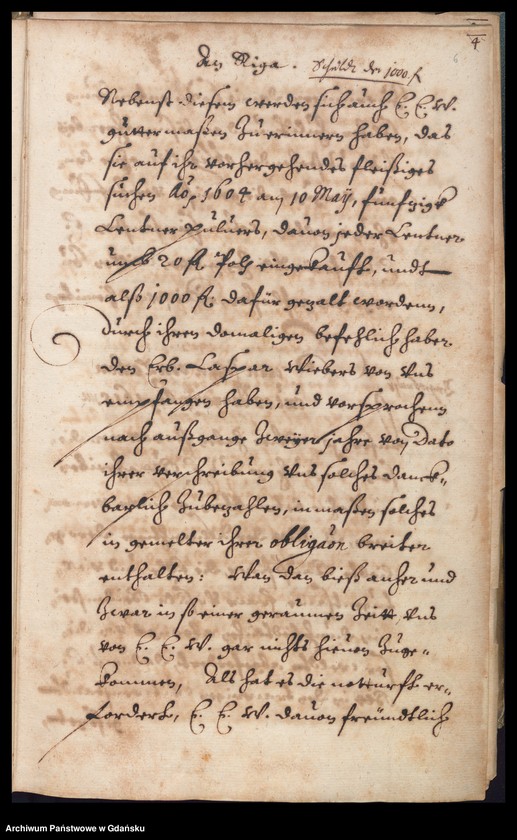 4
An Riga. Schuldt der 1000. fl
Nebenst diesem werden sich auch E. E. W.
guttermaßen zu erinnern haben, das
sie auf ihr vorhergehendes fleißiges
suchen Ao. 1604 am 10 May, funfzigk
Centner Puluers, dauon jeder Centner
umb 20 fl. Polß eingekaufft, undt
alß 1000 fl. dafür gezalt wordenn,
durch ihren domaligen befehlichhaber
den Erb. Caspar Wiebers von vns
empfangen haben, und vorsprochenn
nach außgange zweyer jahre von Dato
ihrer verschreibung vns solches danck-
barlich zubezahlen, inmaßen solches
in gemelter ihrer obligaon breiter
enthalten: Wan dan bieß anher und
zwar in so einer geraumen Zeitt, vns
von E. E. W. gar nichts hieuon zuge-
kommen, Als hat es die notturft er-
fordert, E. E. W. dauon freundtlich
Archiwum Państwowe w Gdańsku